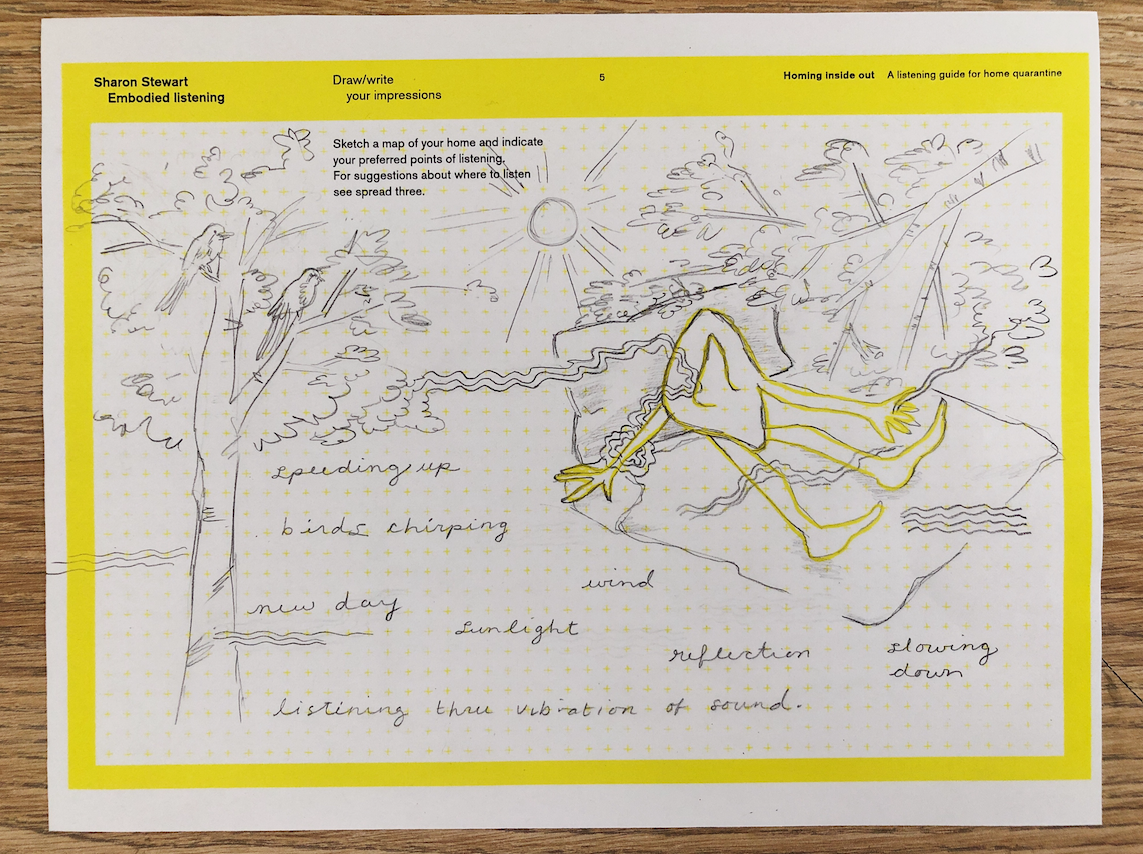 Sharon Stewart
Embodied listening
Draw/write
your impressions
5
Homing inside out A listening guide for home quarantine
Sketch a map of your home and indicate
your preferred points of listening.
For suggestions about where to listen
see spread three.
speeding up
birds chirping
wind
new day
sunlight
reflection
slowing
down
listining thru vibration of sound.